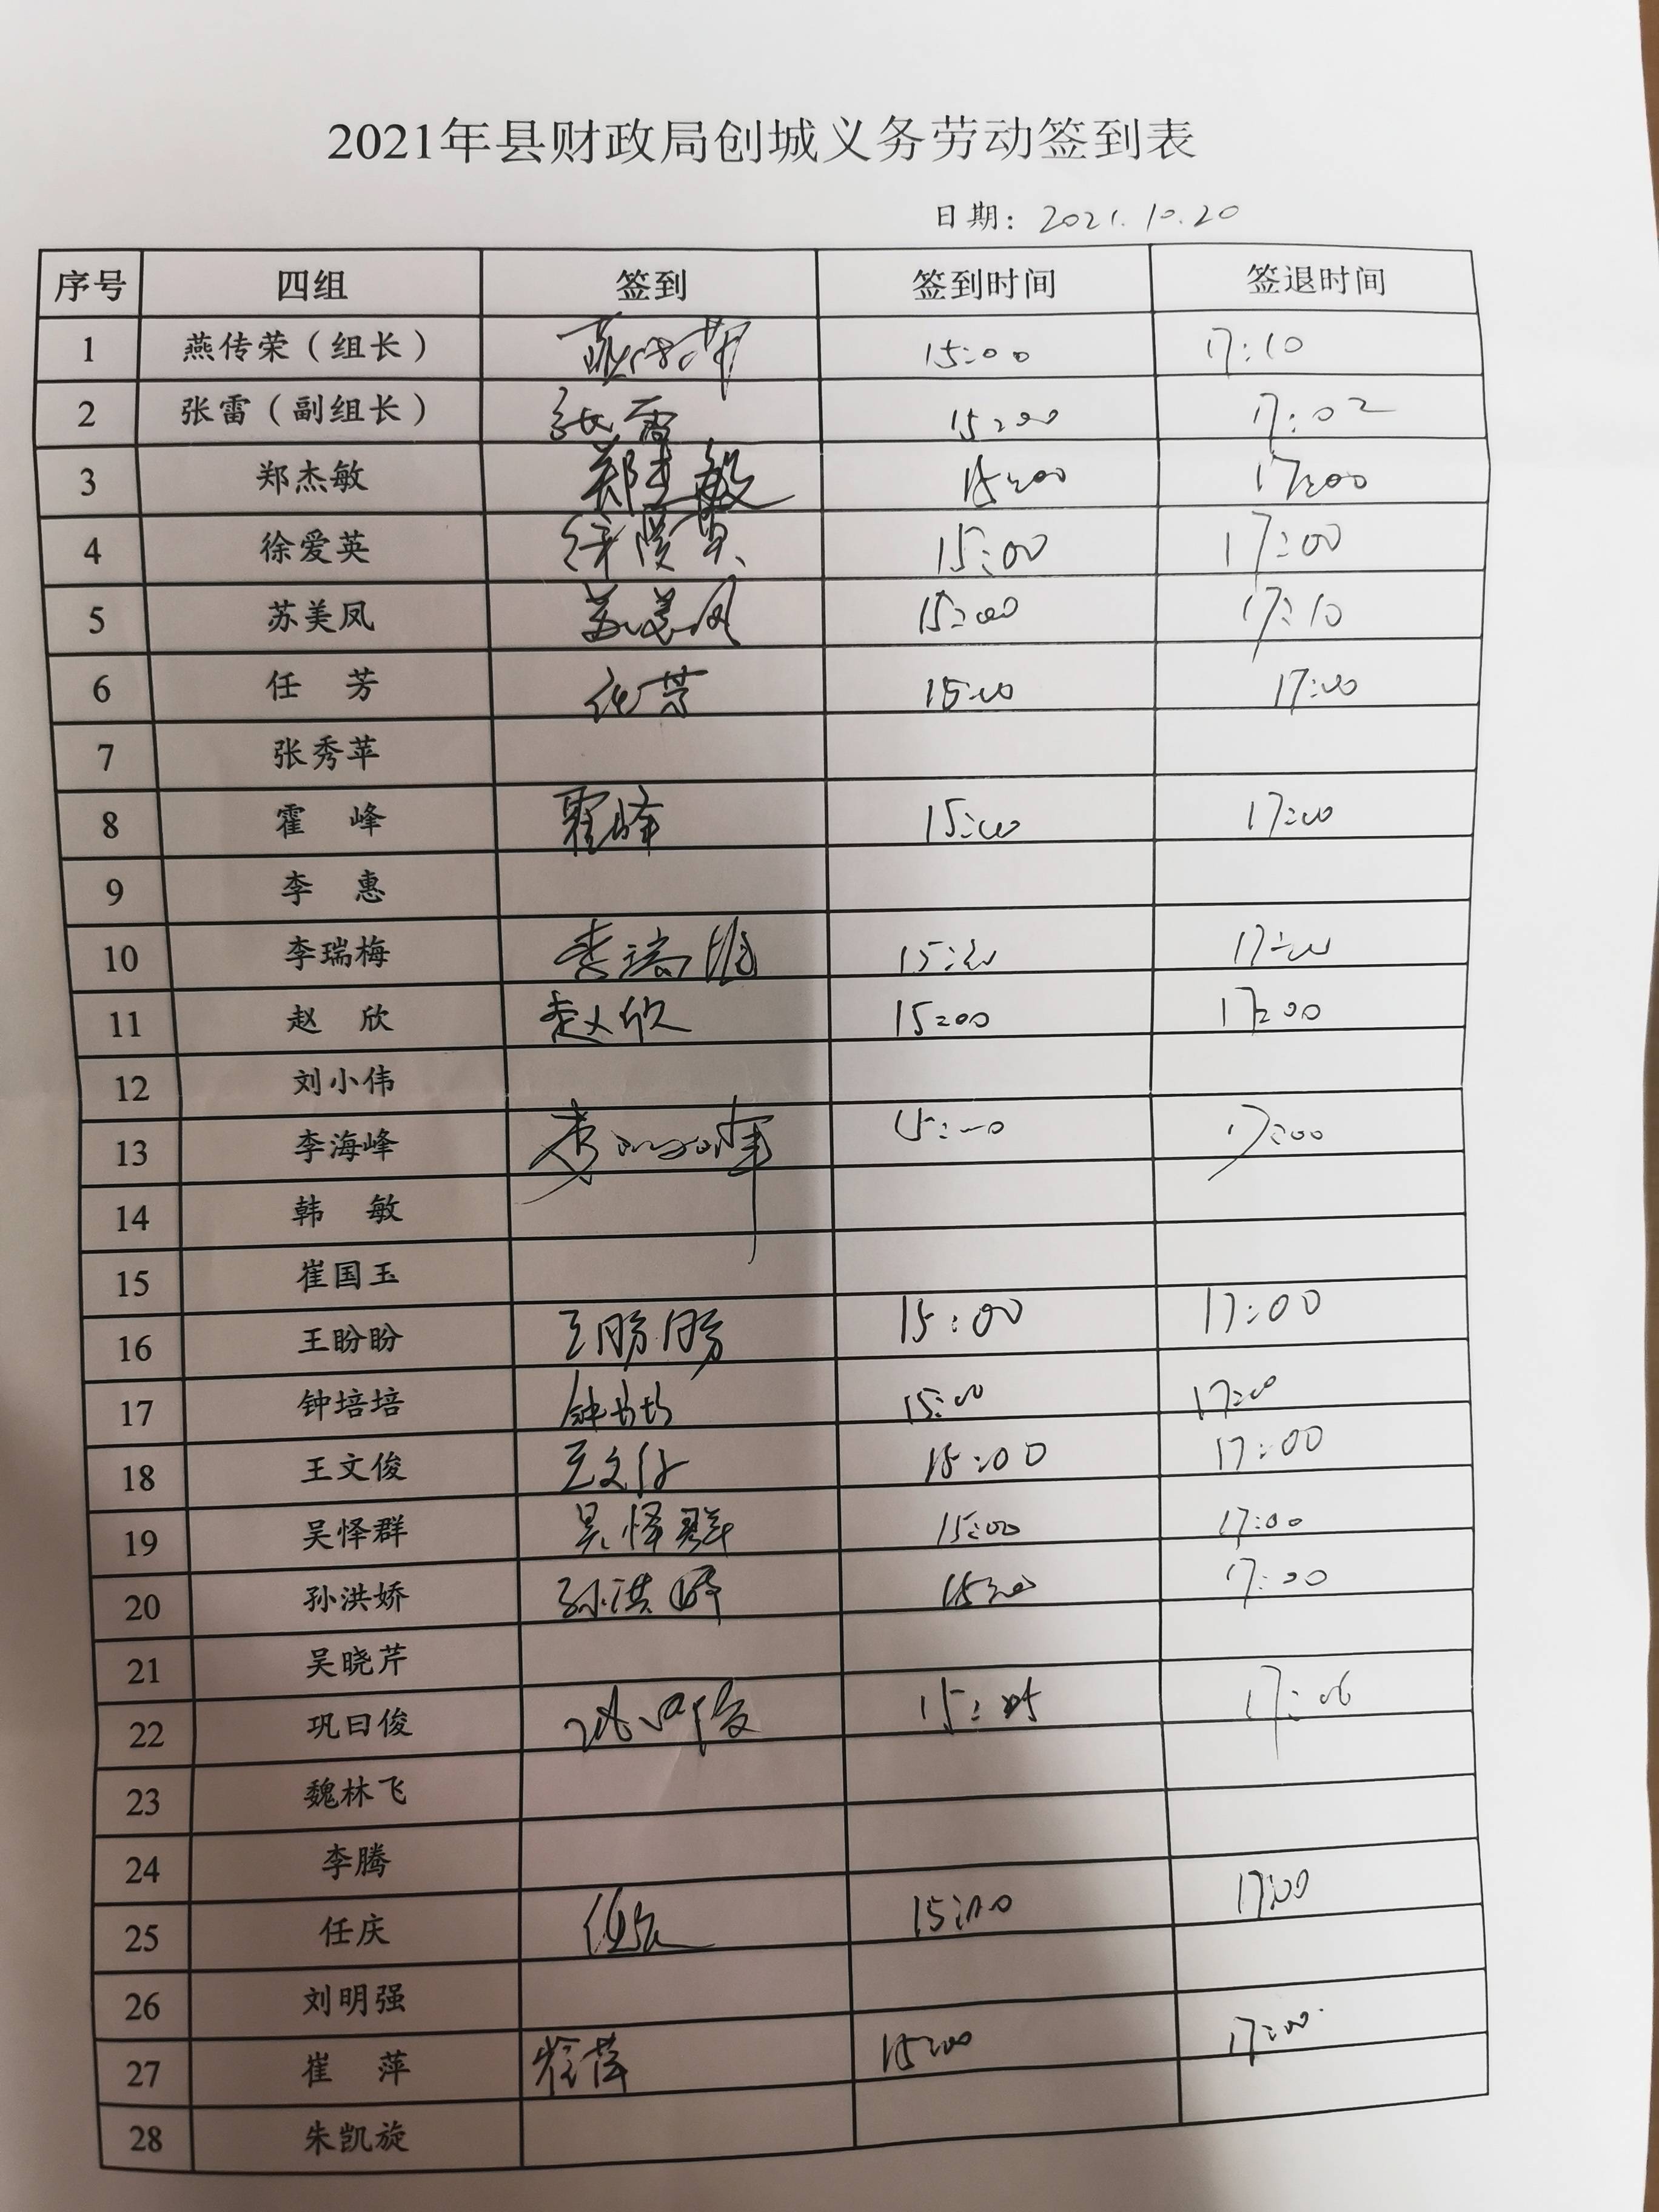 2021年县财政局创城义务劳动签到表
日期: 2021.10.20
序号 四组 签到 签到时间 签退时间
1 燕传荣（组长） 燕传荣 15:00 17:10
2 张雷（副组长） 张雷 15:00 17:02
3 郑杰敏 郑杰敏 15:00 17:00
4 徐爱英 徐爱英 15:00 17:00
5 苏美凤 苏美凤 15:00 17:10
6 任 芳 任芳 15:00 17:00
7 张秀苹
8 霍 峰 霍峰 15:00 17:00
9 李 惠
10 李瑞梅 李瑞梅 15:00 17:00
11 赵 欣 赵欣 15:00 17:00
12 刘小伟
13 李海峰 李海峰 15:00 17:00
14 韩 敏
15 崔国玉
16 王盼盼 王盼盼 15:00 17:00
17 钟培培 钟培培 15:00 17:00
18 王文俊 王文俊 15:00 17:00
19 吴怿群 吴怿群 15:00 17:00
20 孙洪娇 孙洪娇 15:00 17:00
21 吴晓芹
22 巩曰俊 巩曰俊 15:05 17:06
23 魏林飞
24 李腾
25 任庆 任庆 15:00 17:00
26 刘明强
27 崔 萍 崔萍 15:00 17:00
28 朱凯旋